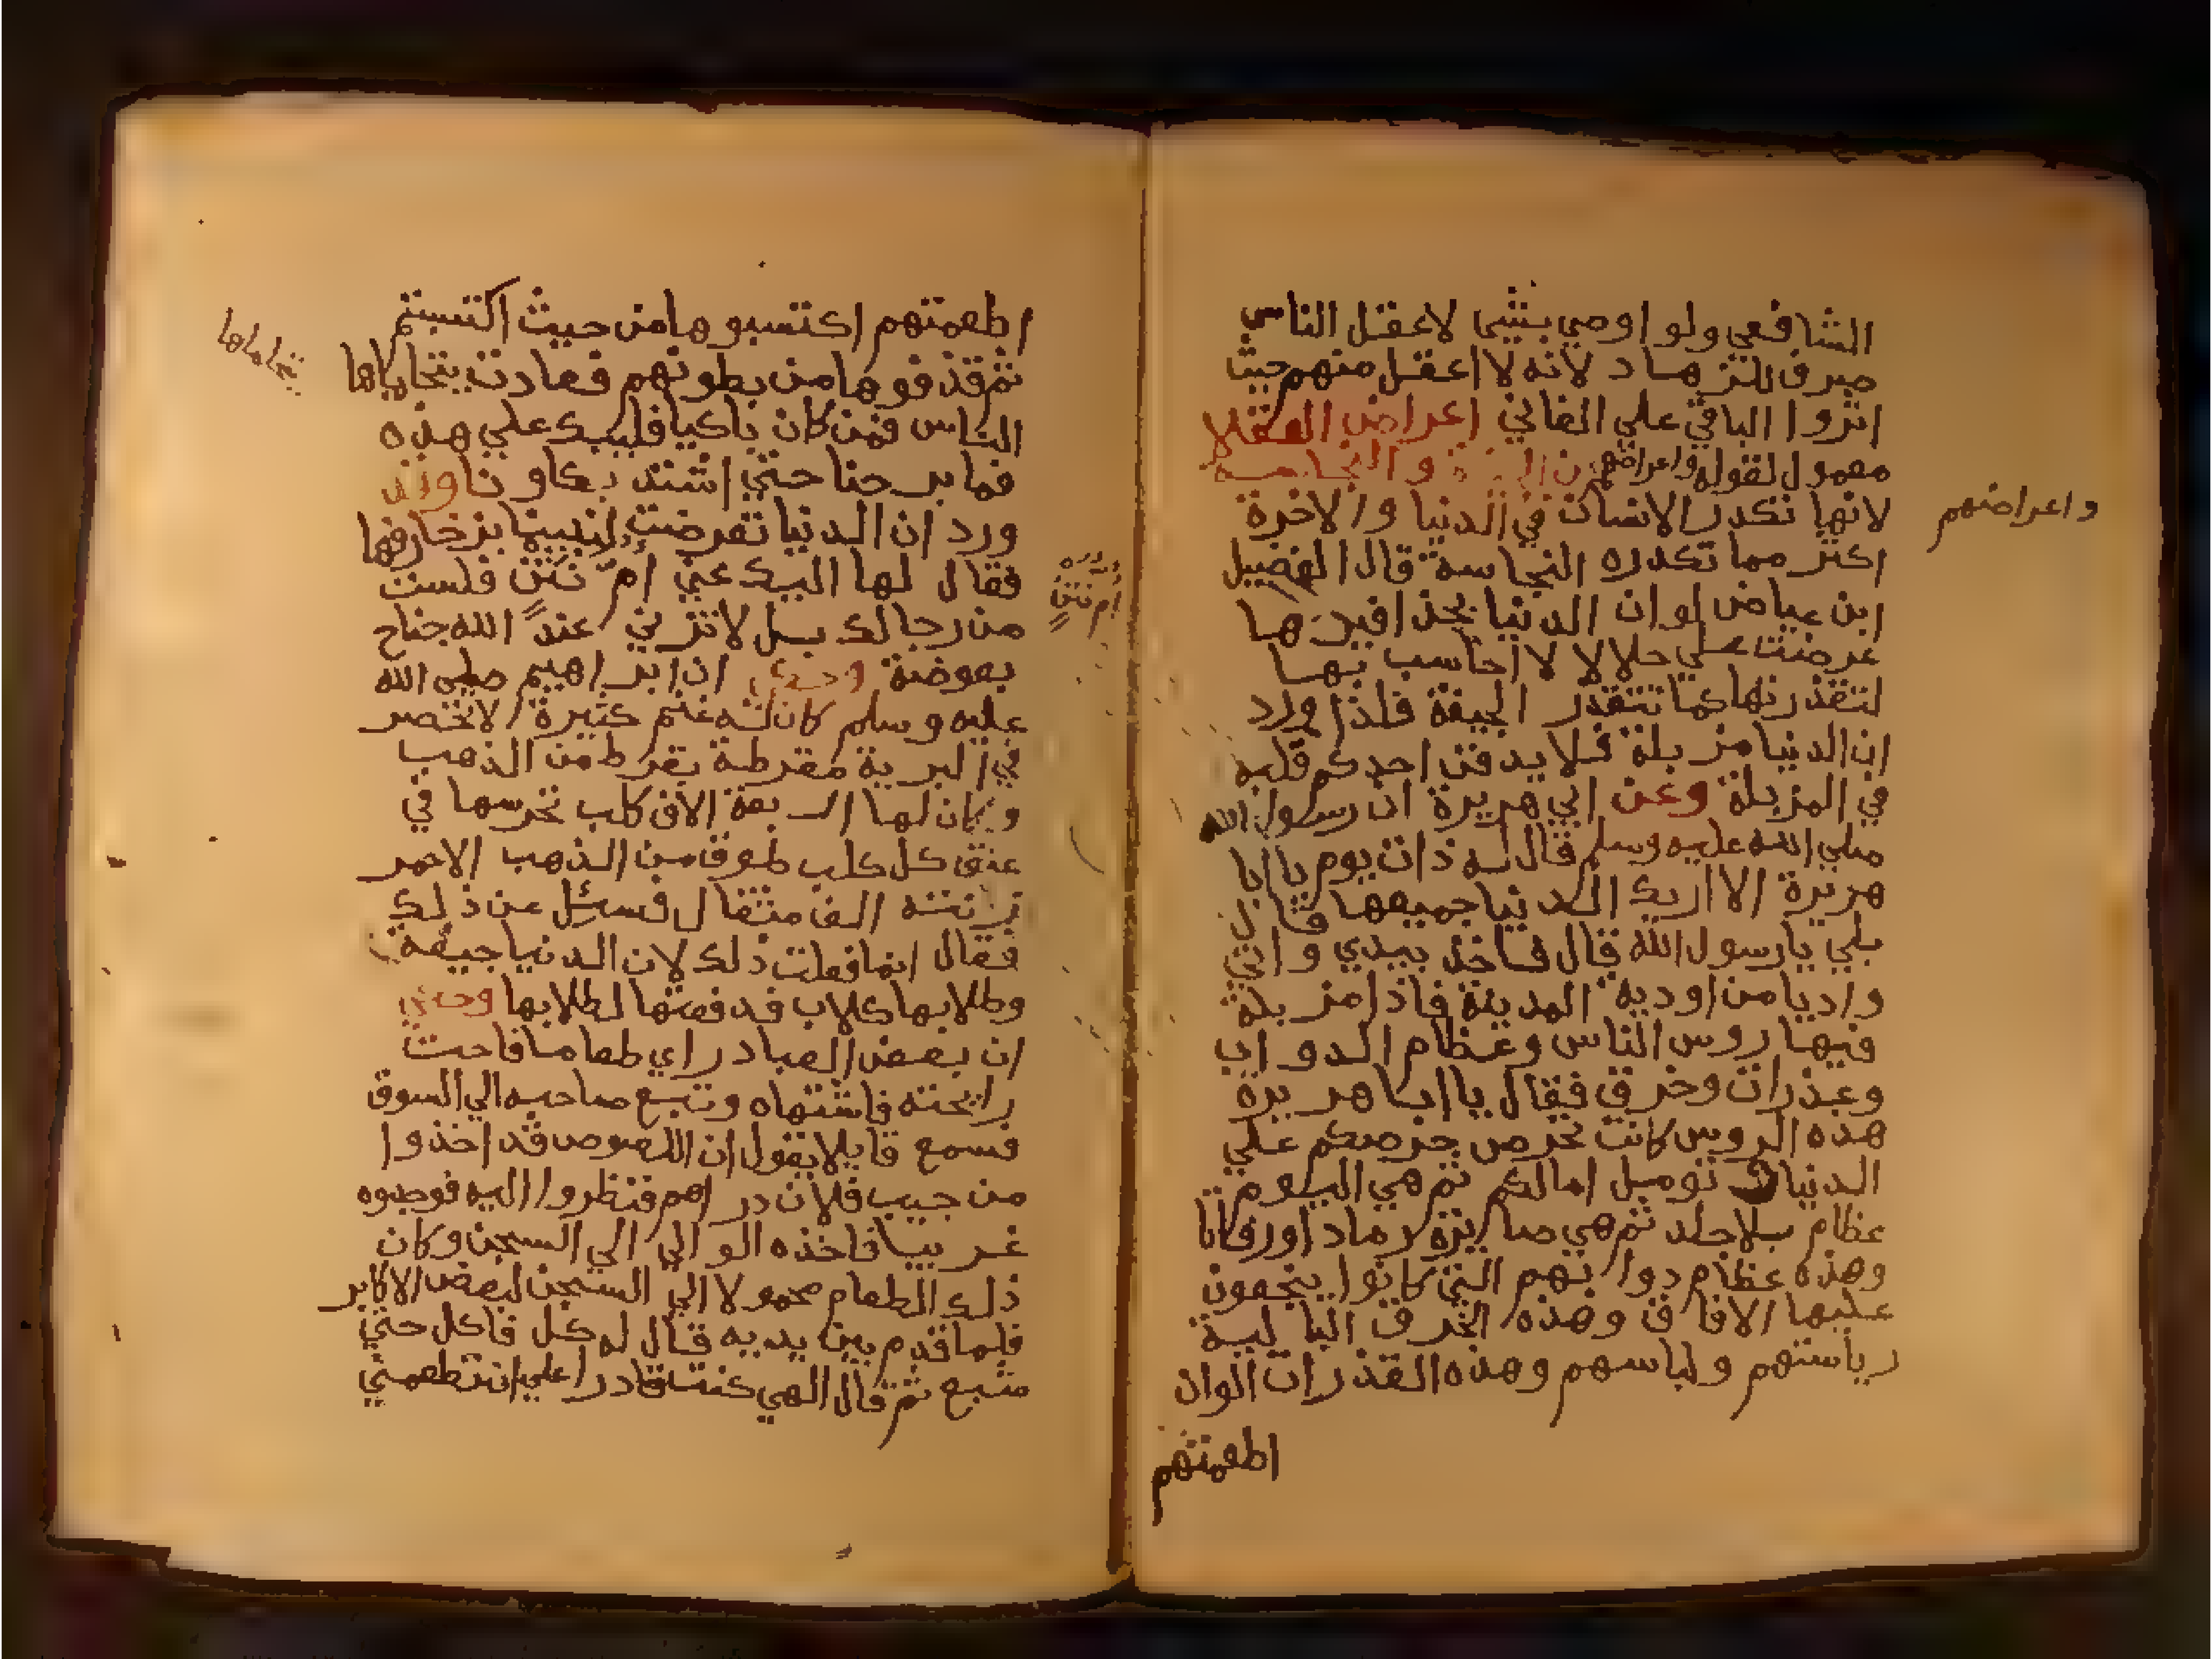 الشافعي ولو اوصي بشي لاعقل الناس
صرف للزهاد لانه لا اعقل منهم حيث
اثروا الباقي علي الفاني اعراض العقلا
معمول لقوله واعراضهم والنجاسة
لانها تكدر الانسان في الدنيا والاخرة
واعراضهم
اكثر مما تكدره النجاسة قال الفضيل
ابن عياض لو ان الدنيا بحذافيرها
عرضت علي حلالا لا احاسب بها
لتقذرتها كما تتقذر الجيفة فلذا ورد
ان الدنيا مزبلة فلا يدفن احدكم قلبه
في المزبلة وعن ابي هريرة ان رسول الله
صلي الله عليه وسلم قال له ذات يوم يا ابا
هريرة الا اريك الدنيا جميعها قال
بلي يا رسول الله قال فاخذ بيدي واتي
واديا من اودية المدينة فاذا مزبلة
فيها روس الناس وعظام الدواب
وعذرات وخرق فقال يا ابا هريرة
هذه الروس كانت تحرص حرصكم علي
الدنيا وتوميل امالكم ثم هي اليوم
عظام بلا جلد ثم هي صايرة رماد او رفاتا
وهذه عظام دوابهم التي كانوا ينجعون
عليها الافاق وهذه الخرق البالية
رياستهم ولباسهم وهذه القذرات الوان
اطعمتهم
اطعمتهم اكتسبوها من حيث اكتسبتم
ثم قذفوها من بطونهم فعادت يتحاياها
يتحاماها
الناس فمن كان باكيا فليبك علي هذه
فما برحنا حتي اشتد بكاونا وان
ورد ان الدنيا تعرضت لنبينا بزخارفها
فقال لها اليك عني ام نتن فلست
ام نتن
من رجالك بل لا تزني عند الله جناح
بعوضة وحكي ان ابراهيم صلي الله
عليه وسلم كان له غنم كثيرة لا تحصر
في البرية مقرطة بقرط من الذهب
وكان لها اربعة الاف كلب تحرسها في
عنق كل كلب طوق من الذهب الاحمر
زنته الف مثقال فسئل عن ذلك
فقال انما فعلت ذلك لان الدنيا جيفة
وطلابها كلاب فدفعتها لطلابها وحكي
ان بعض العباد راي طعاما فاحت
رايحته فاشتهاه وتبع صاحبه الي السوق
فسمع قايلا يقول ان اللصوص قد اخذوا
من جيب فلان دراهم فنظروا اليه فوجدوه
غريبا فاخذه الوالي الي السجن وكان
ذلك الطعام محمولا الي السجن لبعض الاكابر
فلما قدم بين يديه قال له كل فاكل حتي
شبع ثم قال الهي كنت قادرا علي ان تطعمني